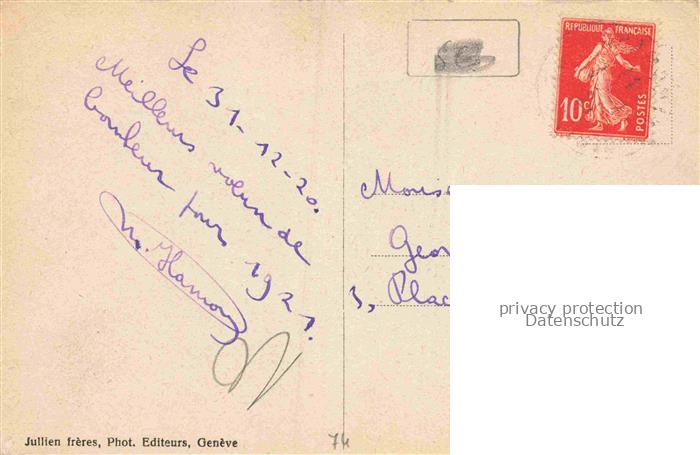 Le 31-12-20.
Meilleurs vœux de
bonheur pour 1921.
M. Hamon
REPUBLIQUE FRANÇAISE
10c
POSTES
Geor
3, Plac
privacy protection
Datenschutz
Jullien frères, Phot. Editeurs, Genève
74